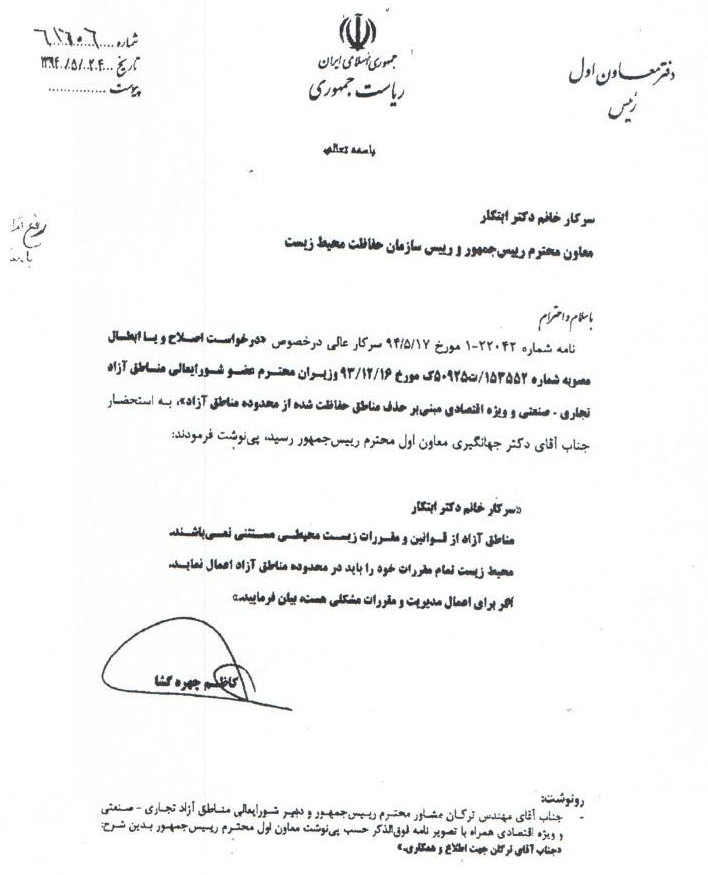 شماره
تاریخ ۱۳۹۴/۵/۲۴
پیوست
جمهوری اسلامی ایران
ریاست جمهوری
دفتر معاون اول
رئیس
باسمه تعالی
سرکار خانم دکتر ابتکار
معاون محترم رییس‌جمهور و رییس سازمان حفاظت محیط زیست
باسلام و احترام
نامه شماره ۲۲۰۴۲-۱ مورخ ۹۴/۵/۱۷ سرکار عالی درخصوص «درخواست اصلاح و یا ابطال
مصوبه شماره ۱۵۳۵۵۲/ت۵۰۹۲۵ک مورخ ۹۳/۱۲/۱۶ وزیران محترم عضو شورایعالی مناطق آزاد
تجاری - صنعتی و ویژه اقتصادی مبنی‌بر حذف مناطق حفاظت شده از محدوده مناطق آزاد»، به استحضار
جناب آقای دکتر جهانگیری معاون اول محترم رییس‌جمهور رسید، پی‌نوشت فرمودند:
«سرکار خانم دکتر ابتکار
مناطق آزاد از قوانین و مقررات زیست محیطی مستثنی نمی‌باشند.
محیط زیست تمام مقررات خود را باید در محدوده مناطق آزاد اعمال نماید.
اگر برای اعمال مدیریت و مقررات مشکلی هست، بیان فرمایید.»
کاظم چهره گشا
رونوشت:
- جناب آقای مهندس ترکان مشاور محترم رییس‌جمهور و دبیر شورایعالی مناطق آزاد تجاری - صنعتی
و ویژه اقتصادی همراه با تصویر نامه فوق‌الذکر حسب پی‌نوشت معاون اول محترم رییس‌جمهور بدین شرح:
«جناب آقای ترکان جهت اطلاع و همکاری.»